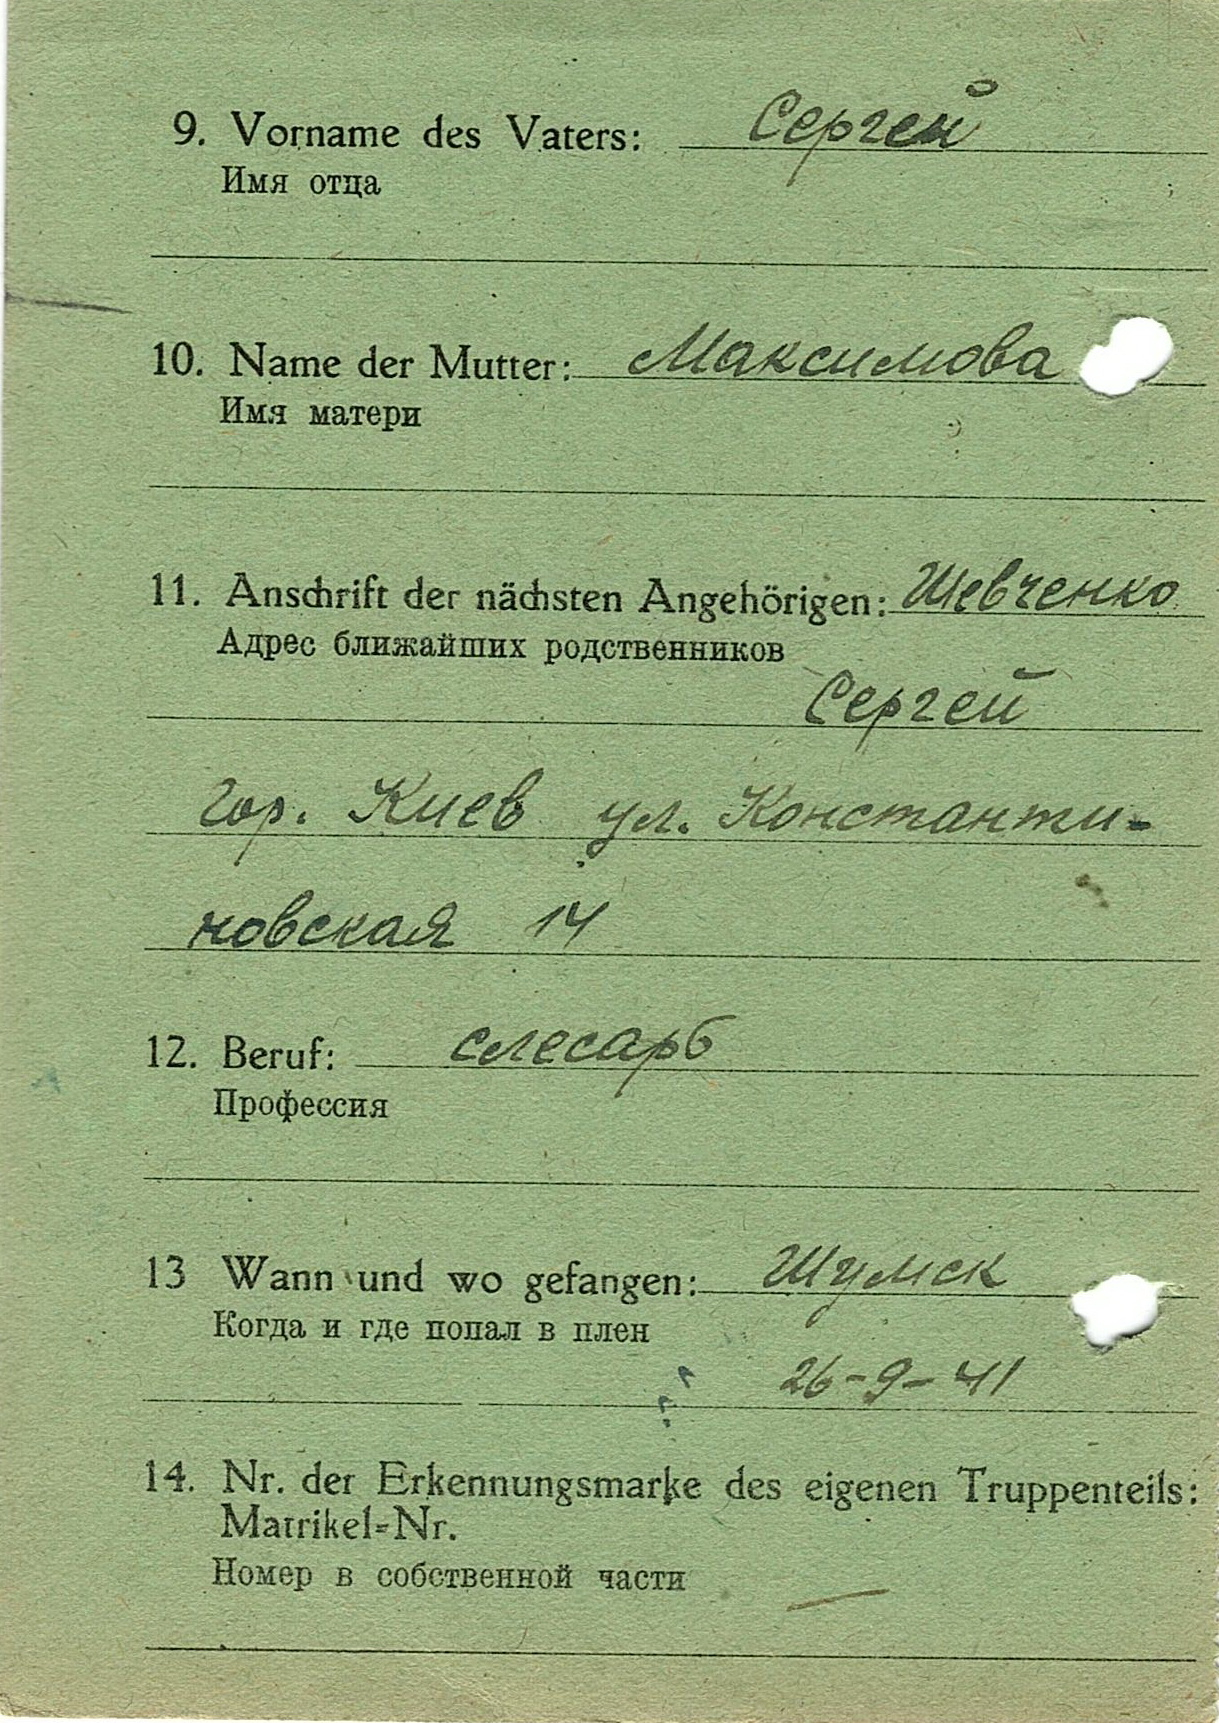 9. Vorname des Vaters: Сергей
Имя отца
10. Name der Mutter: Максимова
Имя матери
11. Anschrift der nächsten Angehörigen: Шевченко
Адрес ближайших родственников
Сергей
гор. Киев ул. Константи-
новская 14
12. Beruf: слесарь
Профессия
13 Wann und wo gefangen: Шумск
Когда и где попал в плен
26-9-41
14. Nr. der Erkennungsmarke des eigenen Truppenteils:
Matrikel-Nr.
Номер в собственной части —